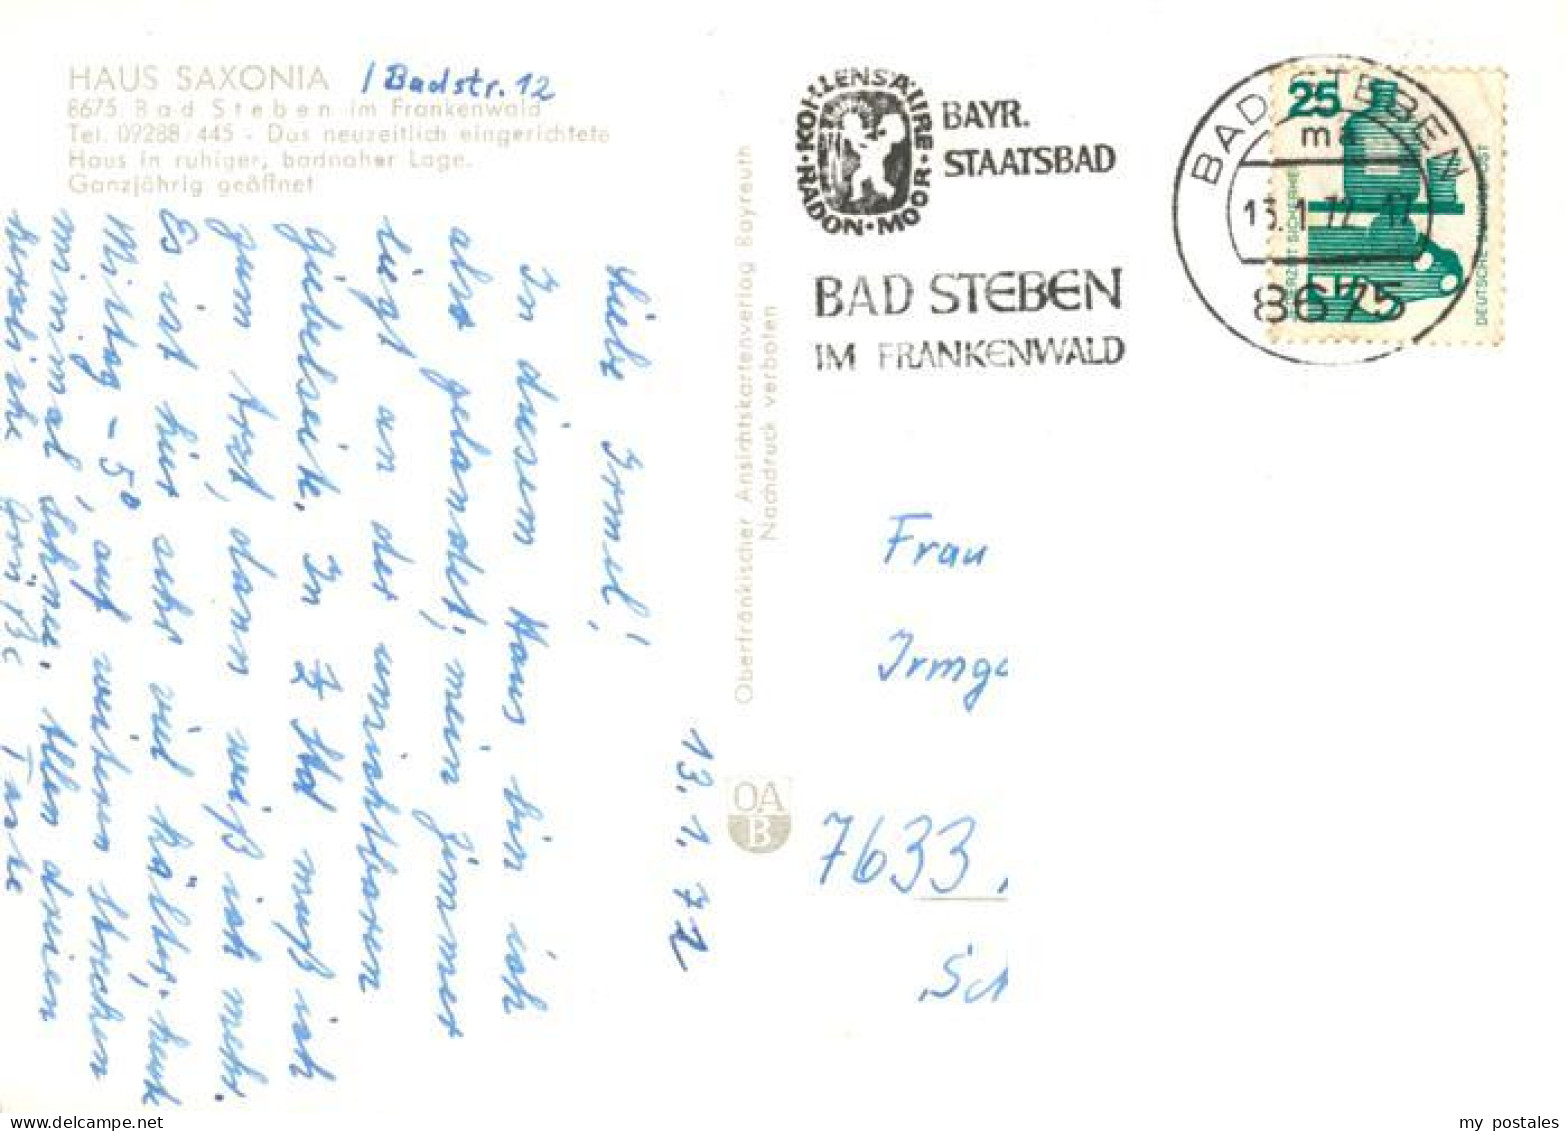 HAUS SAXONIA / Badstr. 12
8675 Bad Steben im Frankenwald
Tel. 09288/445 - Das neuzeitlich eingerichtete
Haus in ruhiger, badnaher Lage.
Ganzjährig geöffnet
13. 1. 72
Liebe Irmel!
In diesem Haus bin ich
also gelandet; mein Zimmer
liegt an der unsichtbaren
Giebelseite. In ½ Std muß ich
zum Arzt, dann weiß ich mehr.
Es ist hier sehr viel kälter, heute
Mittag - 5°, auf weiten Strecken
minimal Schnee. Allen dreien
herzliche Grüße Tante
Oberfränkischer Ansichtskartenverlag Bayreuth
Nachdruck verboten
OA
B
KOHLENSÄURE · MOOR · RADON ·
BAYR.
STAATSBAD
BAD STEBEN
IM FRANKENWALD
BAD STEBEN
ma
13.1.72.17
8675
25
JEDERZEIT SICHERHEIT
DEUTSCHE BUNDESPOST
Frau
Irmga
7633
Sch
my postales